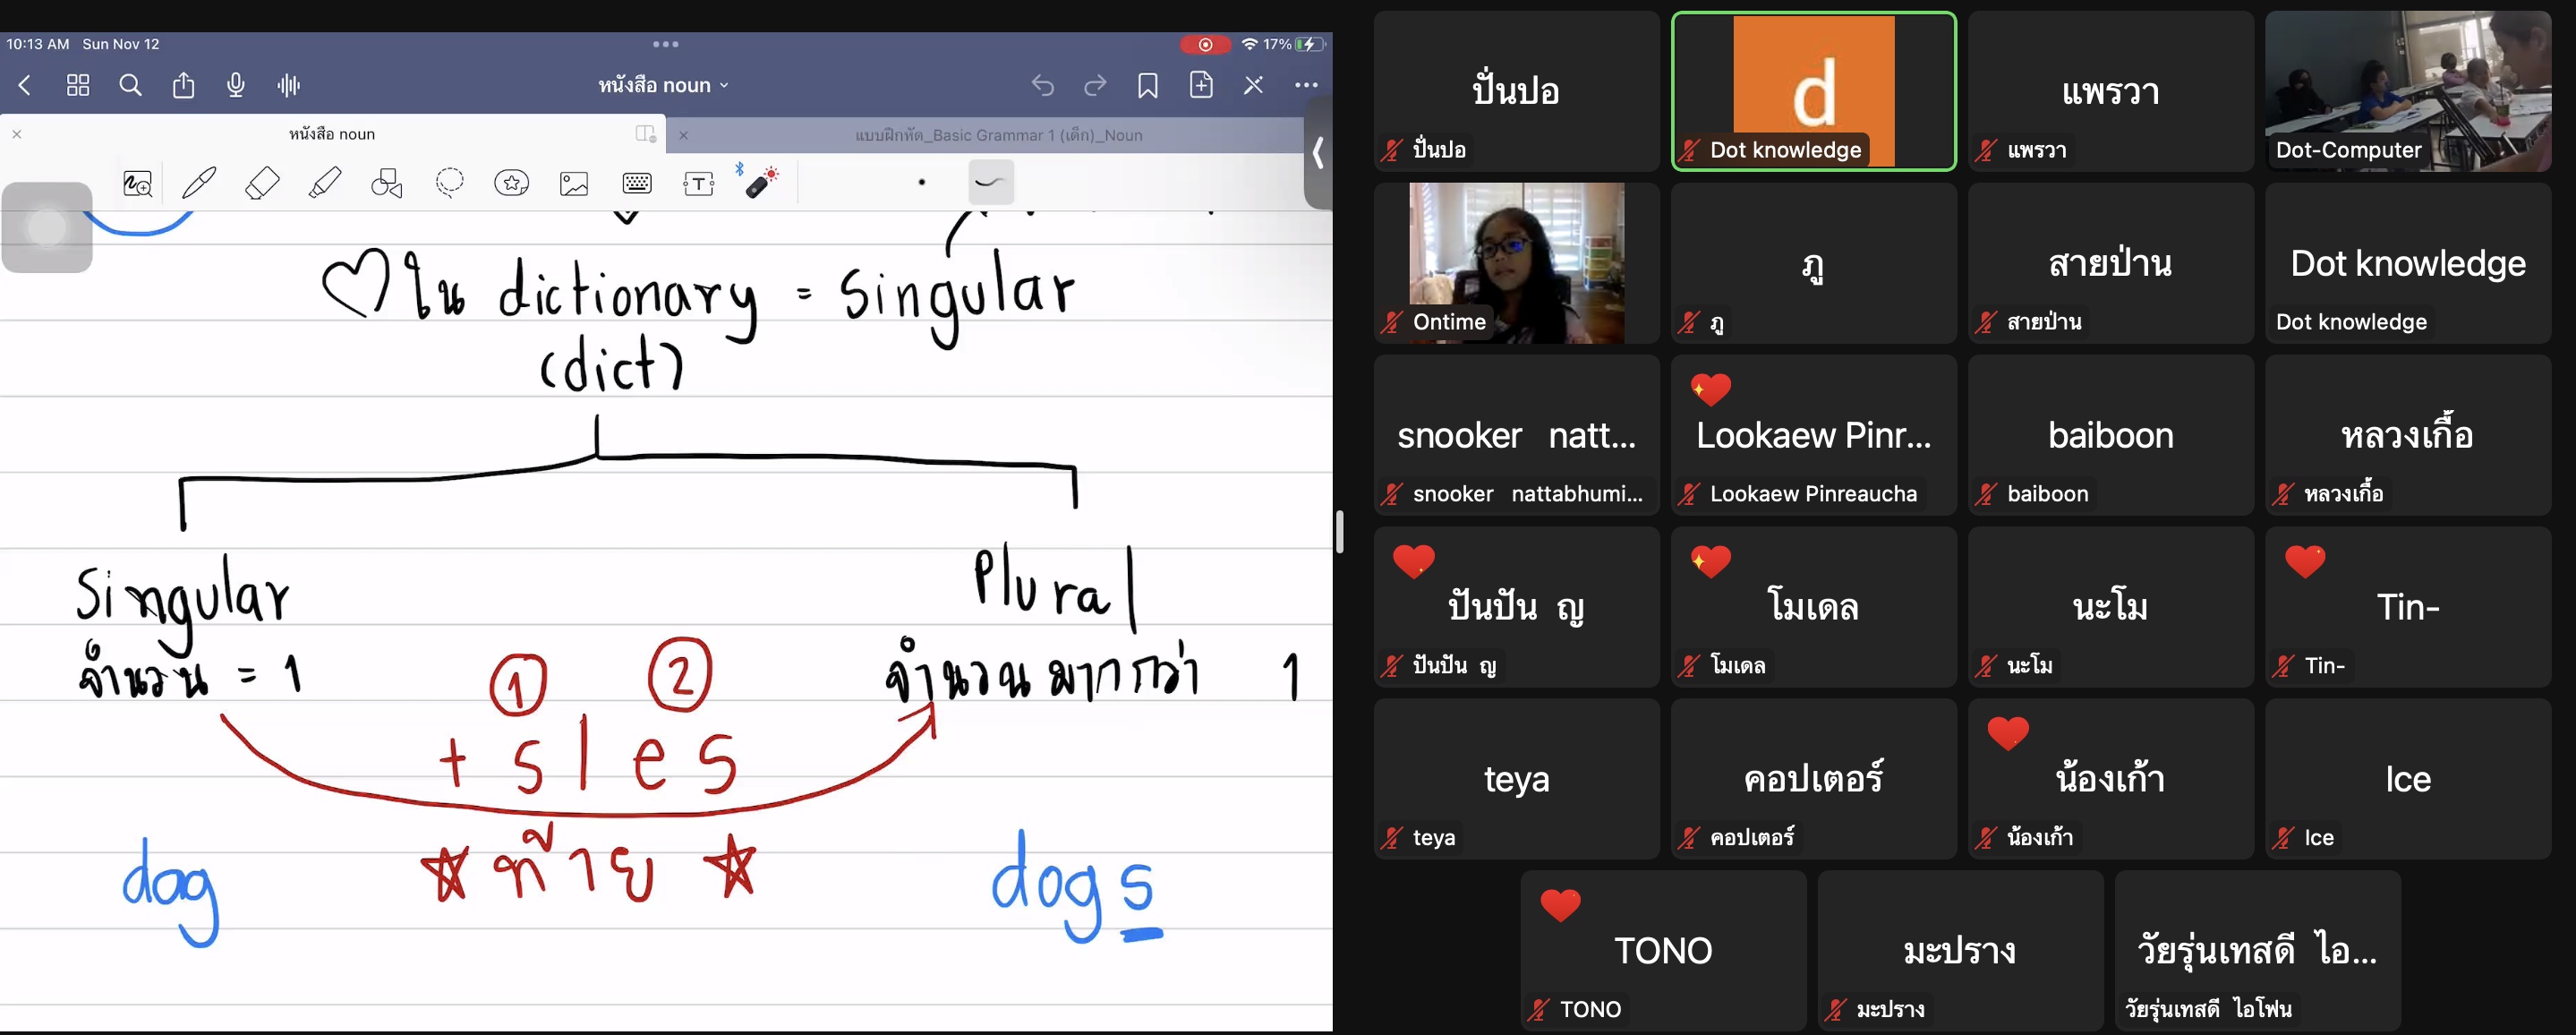 10:13 AM Sun Nov 12
17%
หนังสือ noun
หนังสือ noun
แบบฝึกหัด_Basic Grammar 1 (เด็ก)_Noun
ใน dictionary = singular
(dict)
Singular
Plural
จำนวน = 1
จำนวนมากกว่า 1
1 2
+ s | es
ท้าย
dog
dogs
ปั่นปอ
ปั่นปอ
d
Dot knowledge
แพรวา
แพรวา
Dot-Computer
Ontime
ภู
ภู
สายป่าน
สายป่าน
Dot knowledge
Dot knowledge
snooker natt...
snooker nattabhumi...
Lookaew Pinr...
Lookaew Pinreaucha
baiboon
baiboon
หลวงเกื้อ
หลวงเกื้อ
ปันปัน ญ
ปันปัน ญ
โมเดล
โมเดล
นะโม
นะโม
Tin-
Tin-
teya
teya
คอปเตอร์
คอปเตอร์
น้องเก้า
น้องเก้า
Ice
Ice
TONO
TONO
มะปราง
มะปราง
วัยรุ่นเทสดี ไอ...
วัยรุ่นเทสดี ไอโฟน